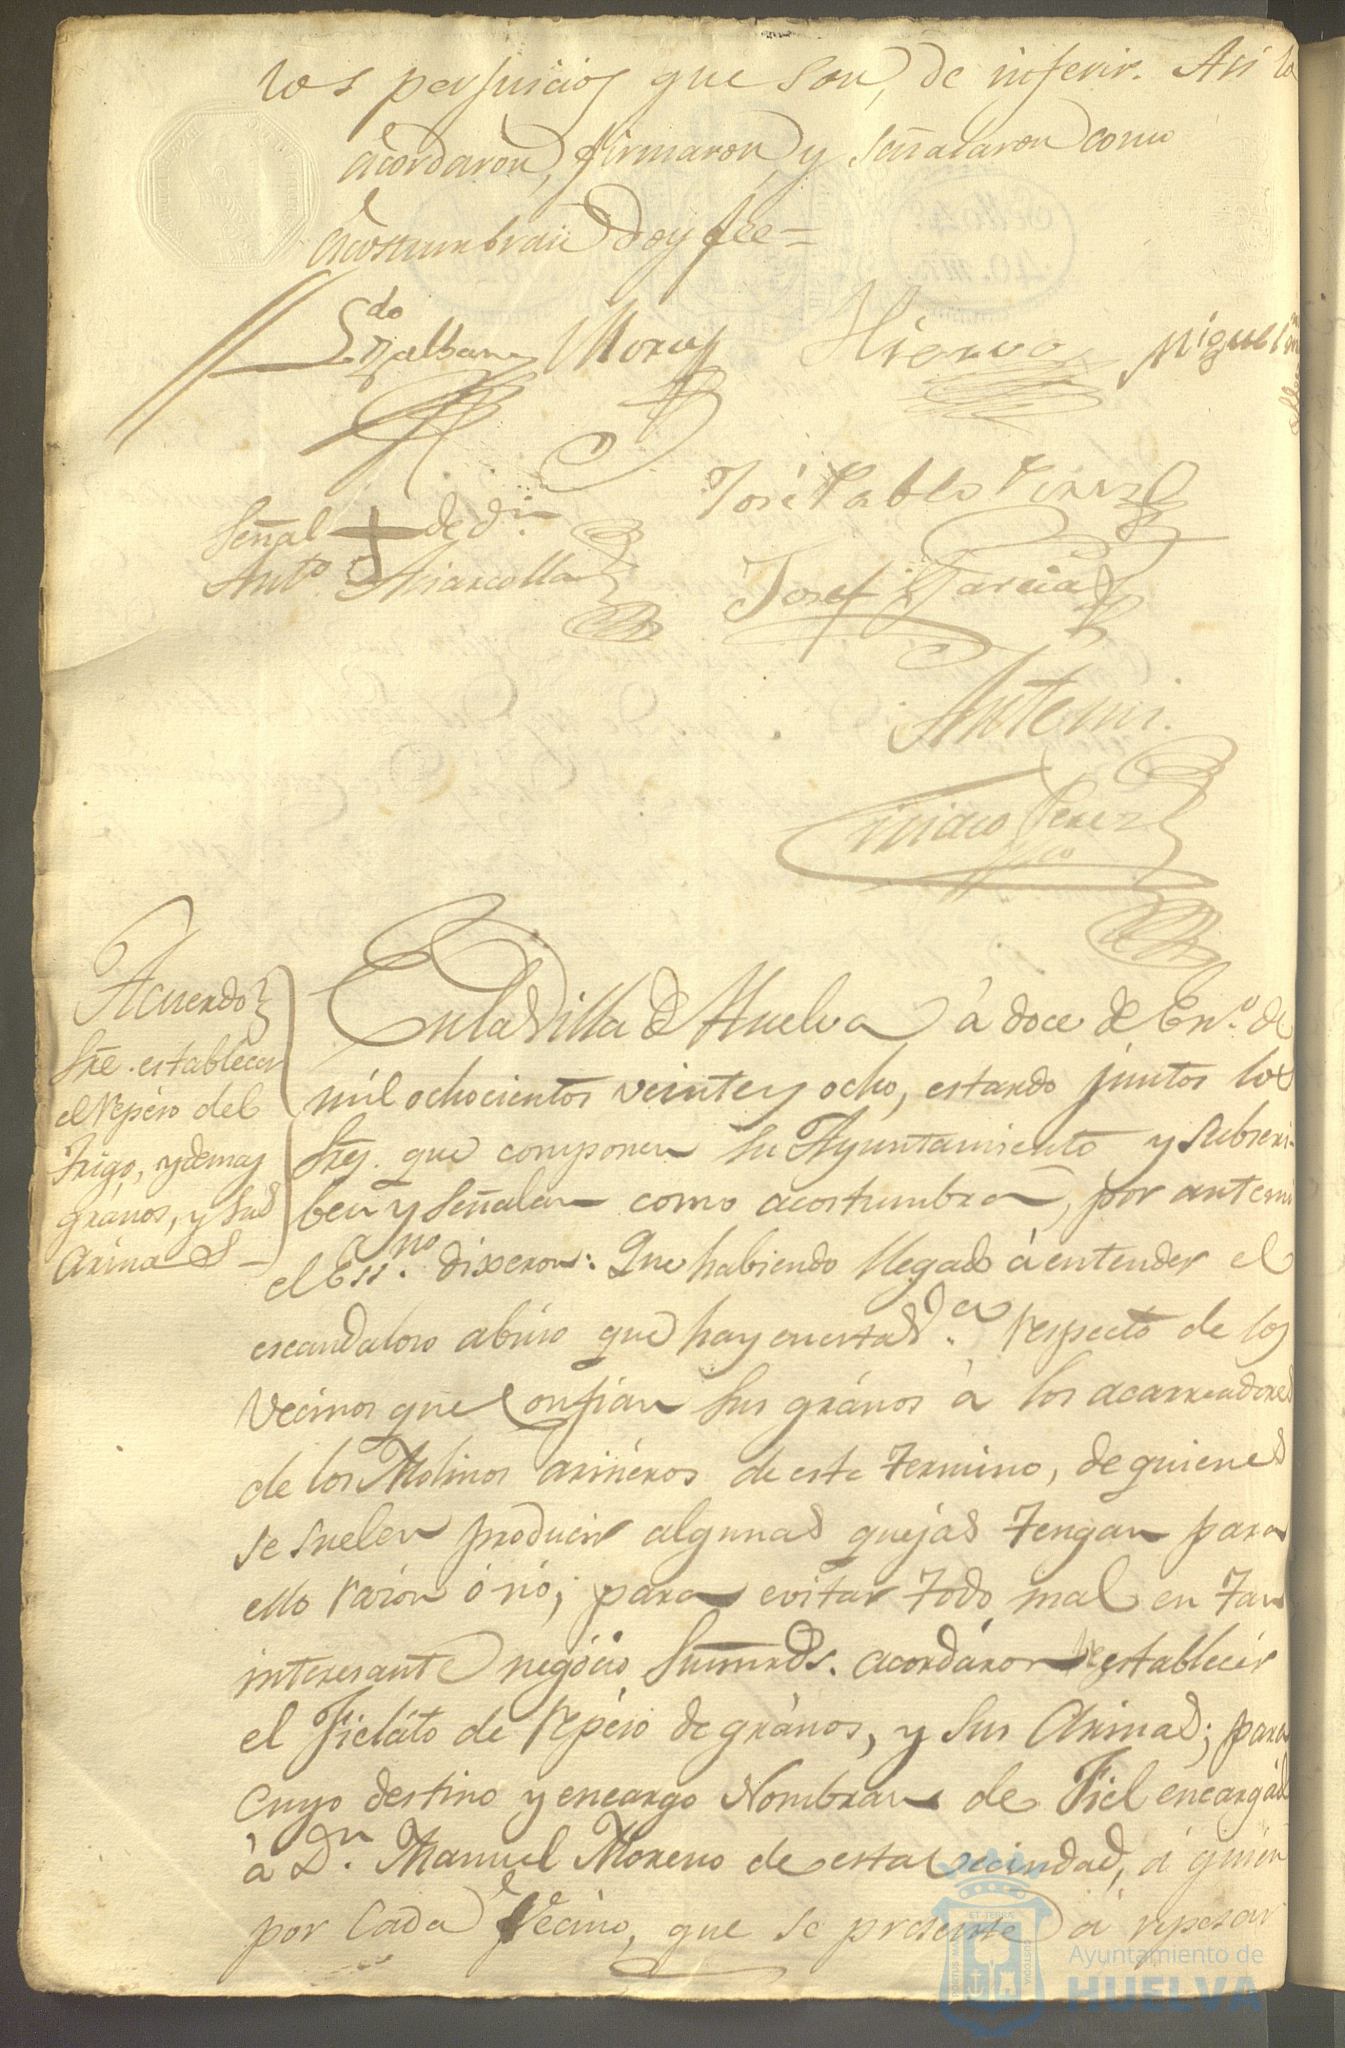 los perjuicios que son de inferir. Asi lo
acordaron, firmaron, y señalaron como
acostumbran Doy fee=
Señal + de dn.
Anto.
José Pablo Perez
Josef Garcia
Antemi.
Ciriaco Perez
Acuerdo
Sre. establecer
el repéso del
Trigo, y demas
grános, y sus
Arinas
En la Villa de Huelva à doce de Eno. de
mil ochocientos veinte y ocho, estando juntos los
Sres. que componen su Ayuntamiento y subscri-
ben y señalan como acostumbran, por antemi
el Essno. dixeron: Que habiendo llegado à entender el
escandaloso abuso que hay en esta Va. respecto de los
Vecinos que confian sus grános à los acarreadores
de los Molinos arinéros de este termino, de quienes
se suelen producir algunas quejas tengan para
ello razón ó nó; para evitar todo mal en tan
interesante negócio sumrds. acordáron restablecér
el Fieláto de repéso de grános, y sus Arinas; para
cuyo destino y encargo Nombran de Fiel encargádo
à Dn. Manuel Moreno de esta vecindad, à quien
por Cada Vecino, que se presente à repesar
Ayuntamiento de
HUELVA